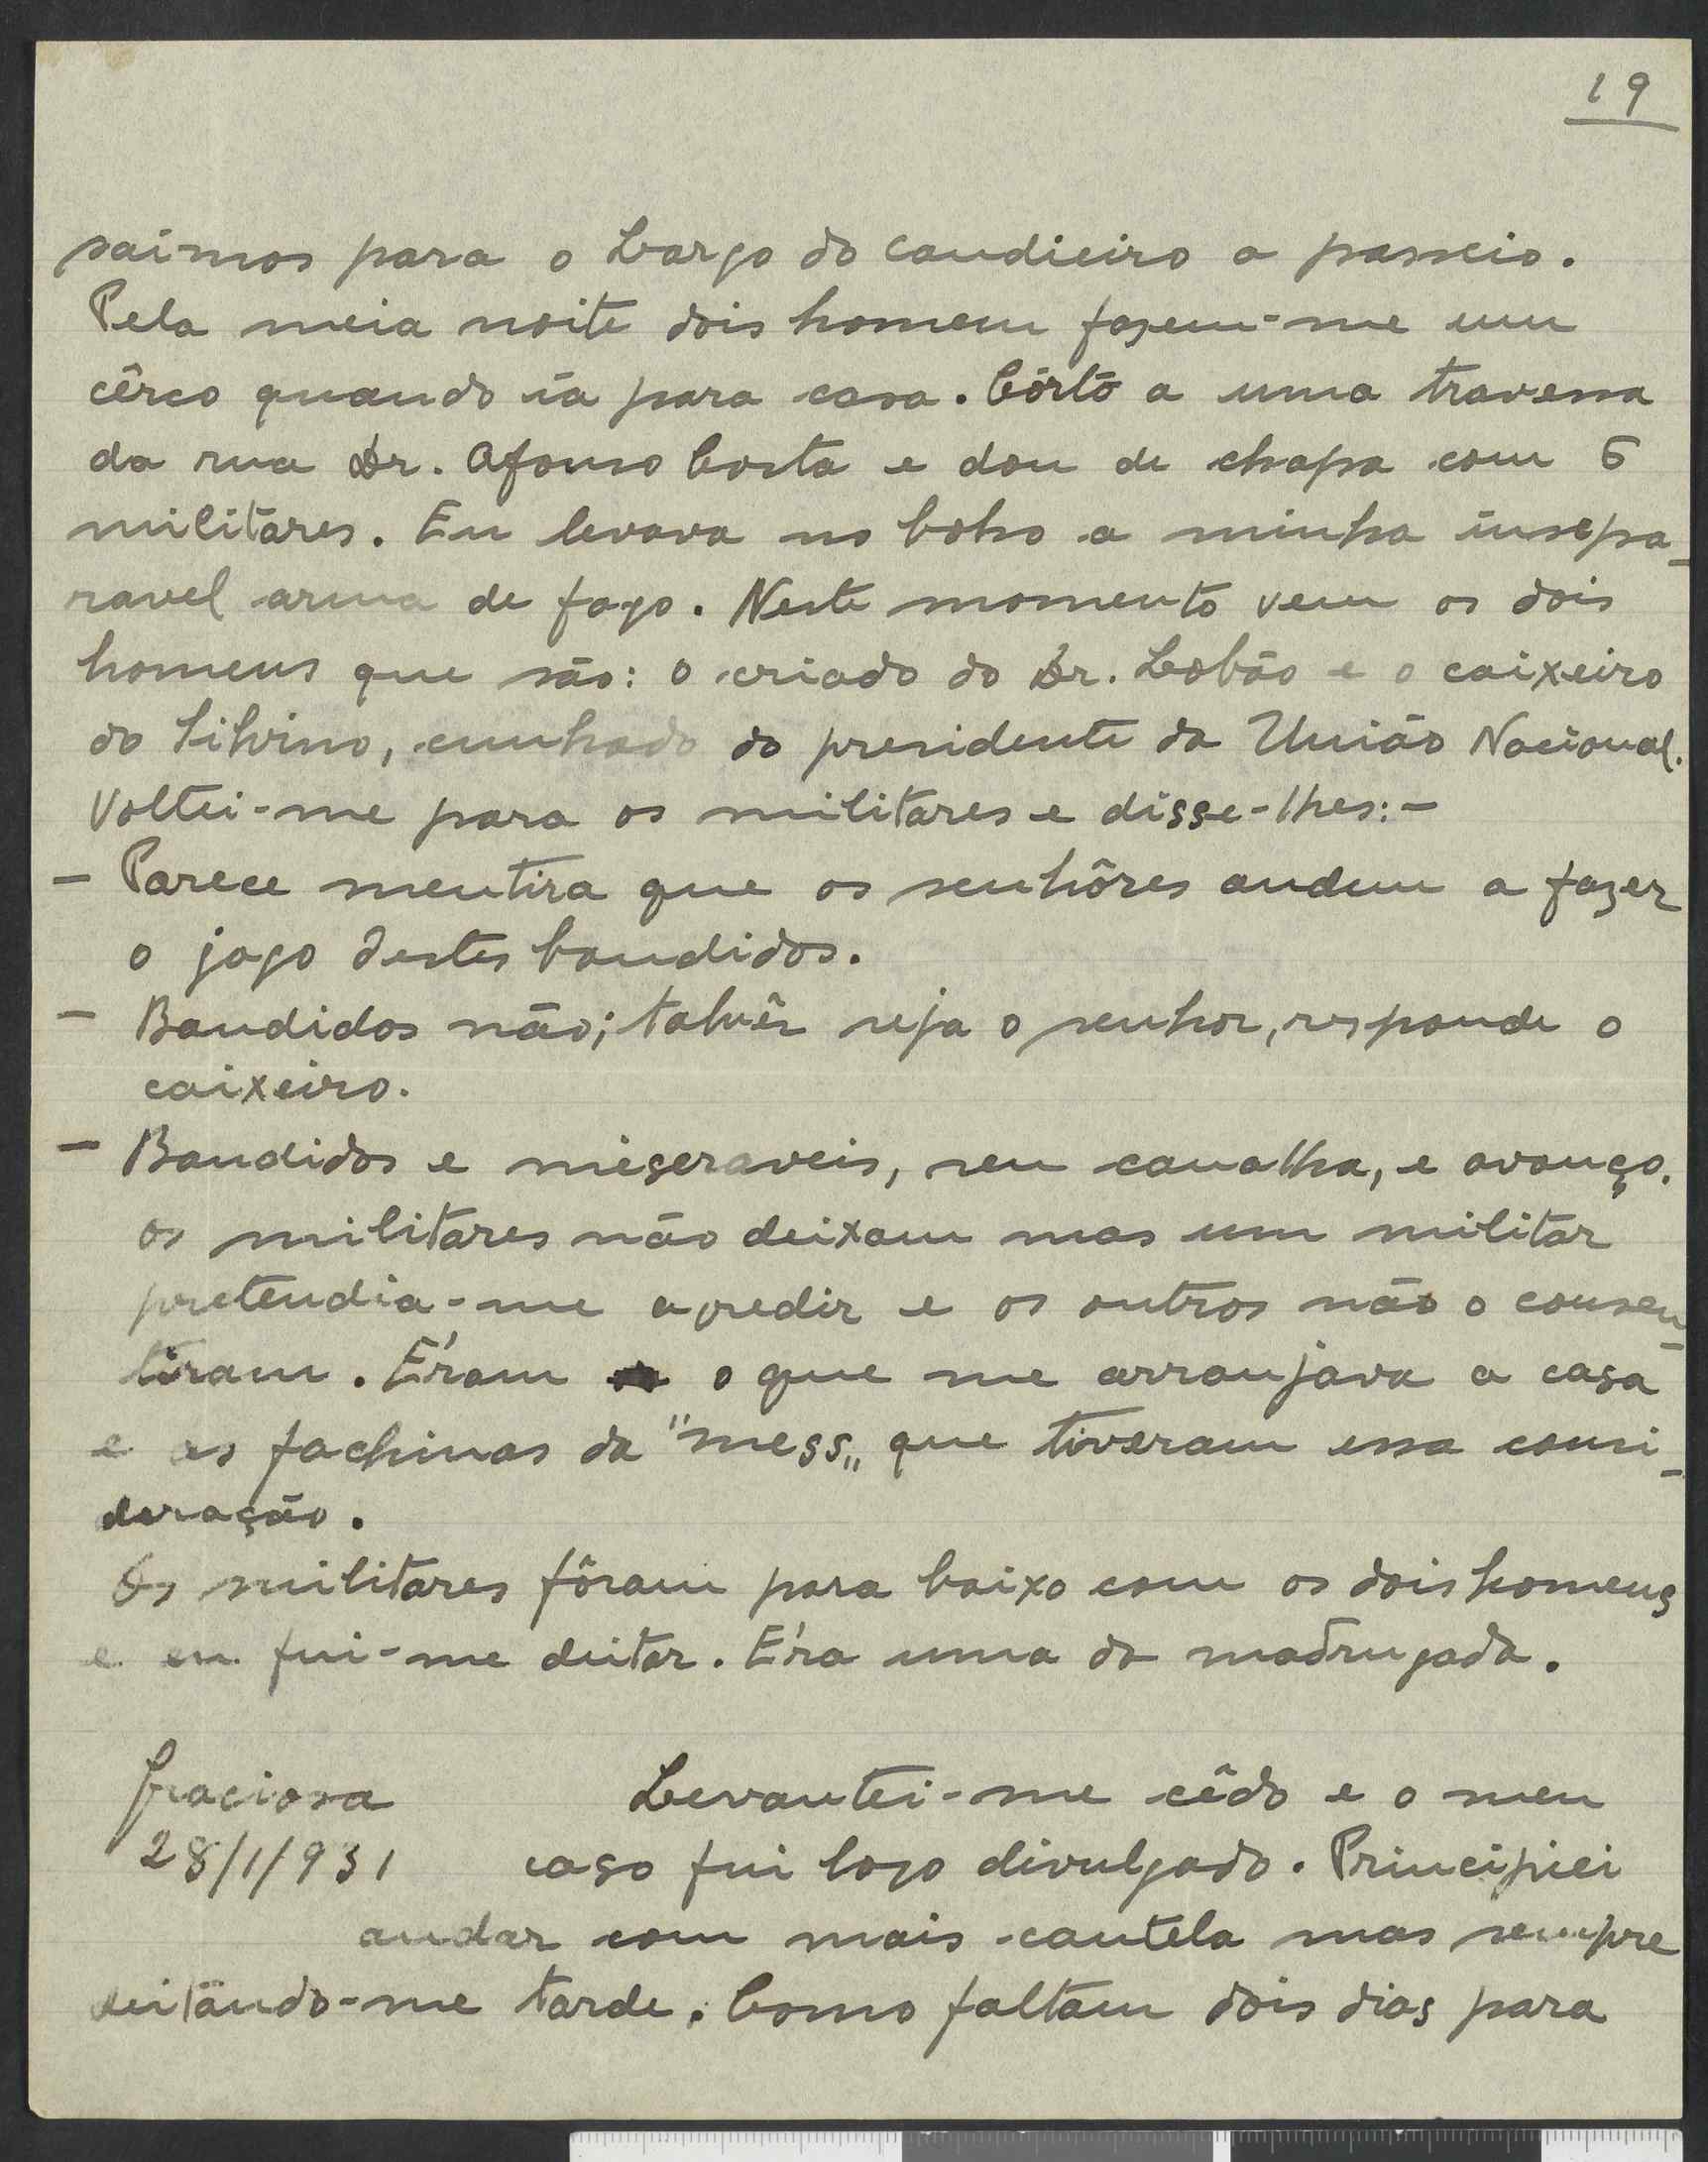 19
saímos para o Largo do Candieiro a passeio.
Pela meia noite dois homem fazem-me um
cêrco quando ía para casa. Córto a uma travessa
da rua Dr. Afonso Costa e dou de chapa com 6
militáres. Eu levava no bolso a minha insepa-
ravel arma de fogo. Neste momento vem os dois
homens que são: o criado do Dr. Lobão e o caixeiro
do Silvino, cunhado do presidente da União Nacional.
Voltei-me para os militares e disse-lhes:-
- Parece mentira que os senhôres andem a fazer
o jogo destes bandidos.
- Bandidos não; talvês seja o senhor, responde o
caixeiro.
- Bandidos e miseraveis, seu canalha, e avanço.
os militares não deixam mas um militar
pretendia-me agredir e os outros não o consen-
tiram. Éram o que me arranjava a casa
e os fachinas da "mess" que tiveram essa consi-
deração.
Os militares fôram para baixo com os dois homens
e eu fui-me deitar. Éra uma da madrugada.
Graciosa
28/1/931
Levantei-me cêdo e o meu
caso fui logo divulgado. Principiei
andar com mais cautela mas sempre
deitando-me tarde. Como faltam dois dias para